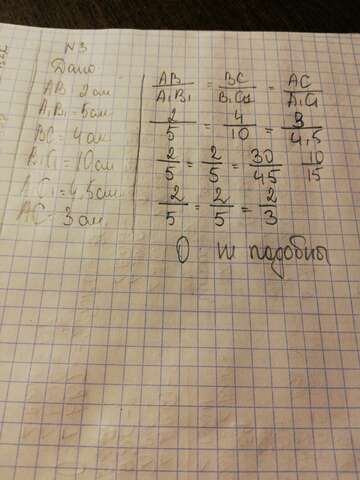 N3
Дано
AB 2 см
A₁B₁ = 5 см
BC = 4 см
B₁C₁ = 10 см
A₁C₁ = 4,5 см
AC = 3 см
AB/A₁B₁ = BC/B₁C₁ = AC/A₁C₁
2/5 = 4/10 = 3/4,5
2/5 = 2/5 = 30/45 10/15
2/5 = 2/5 = 2/3
подобны